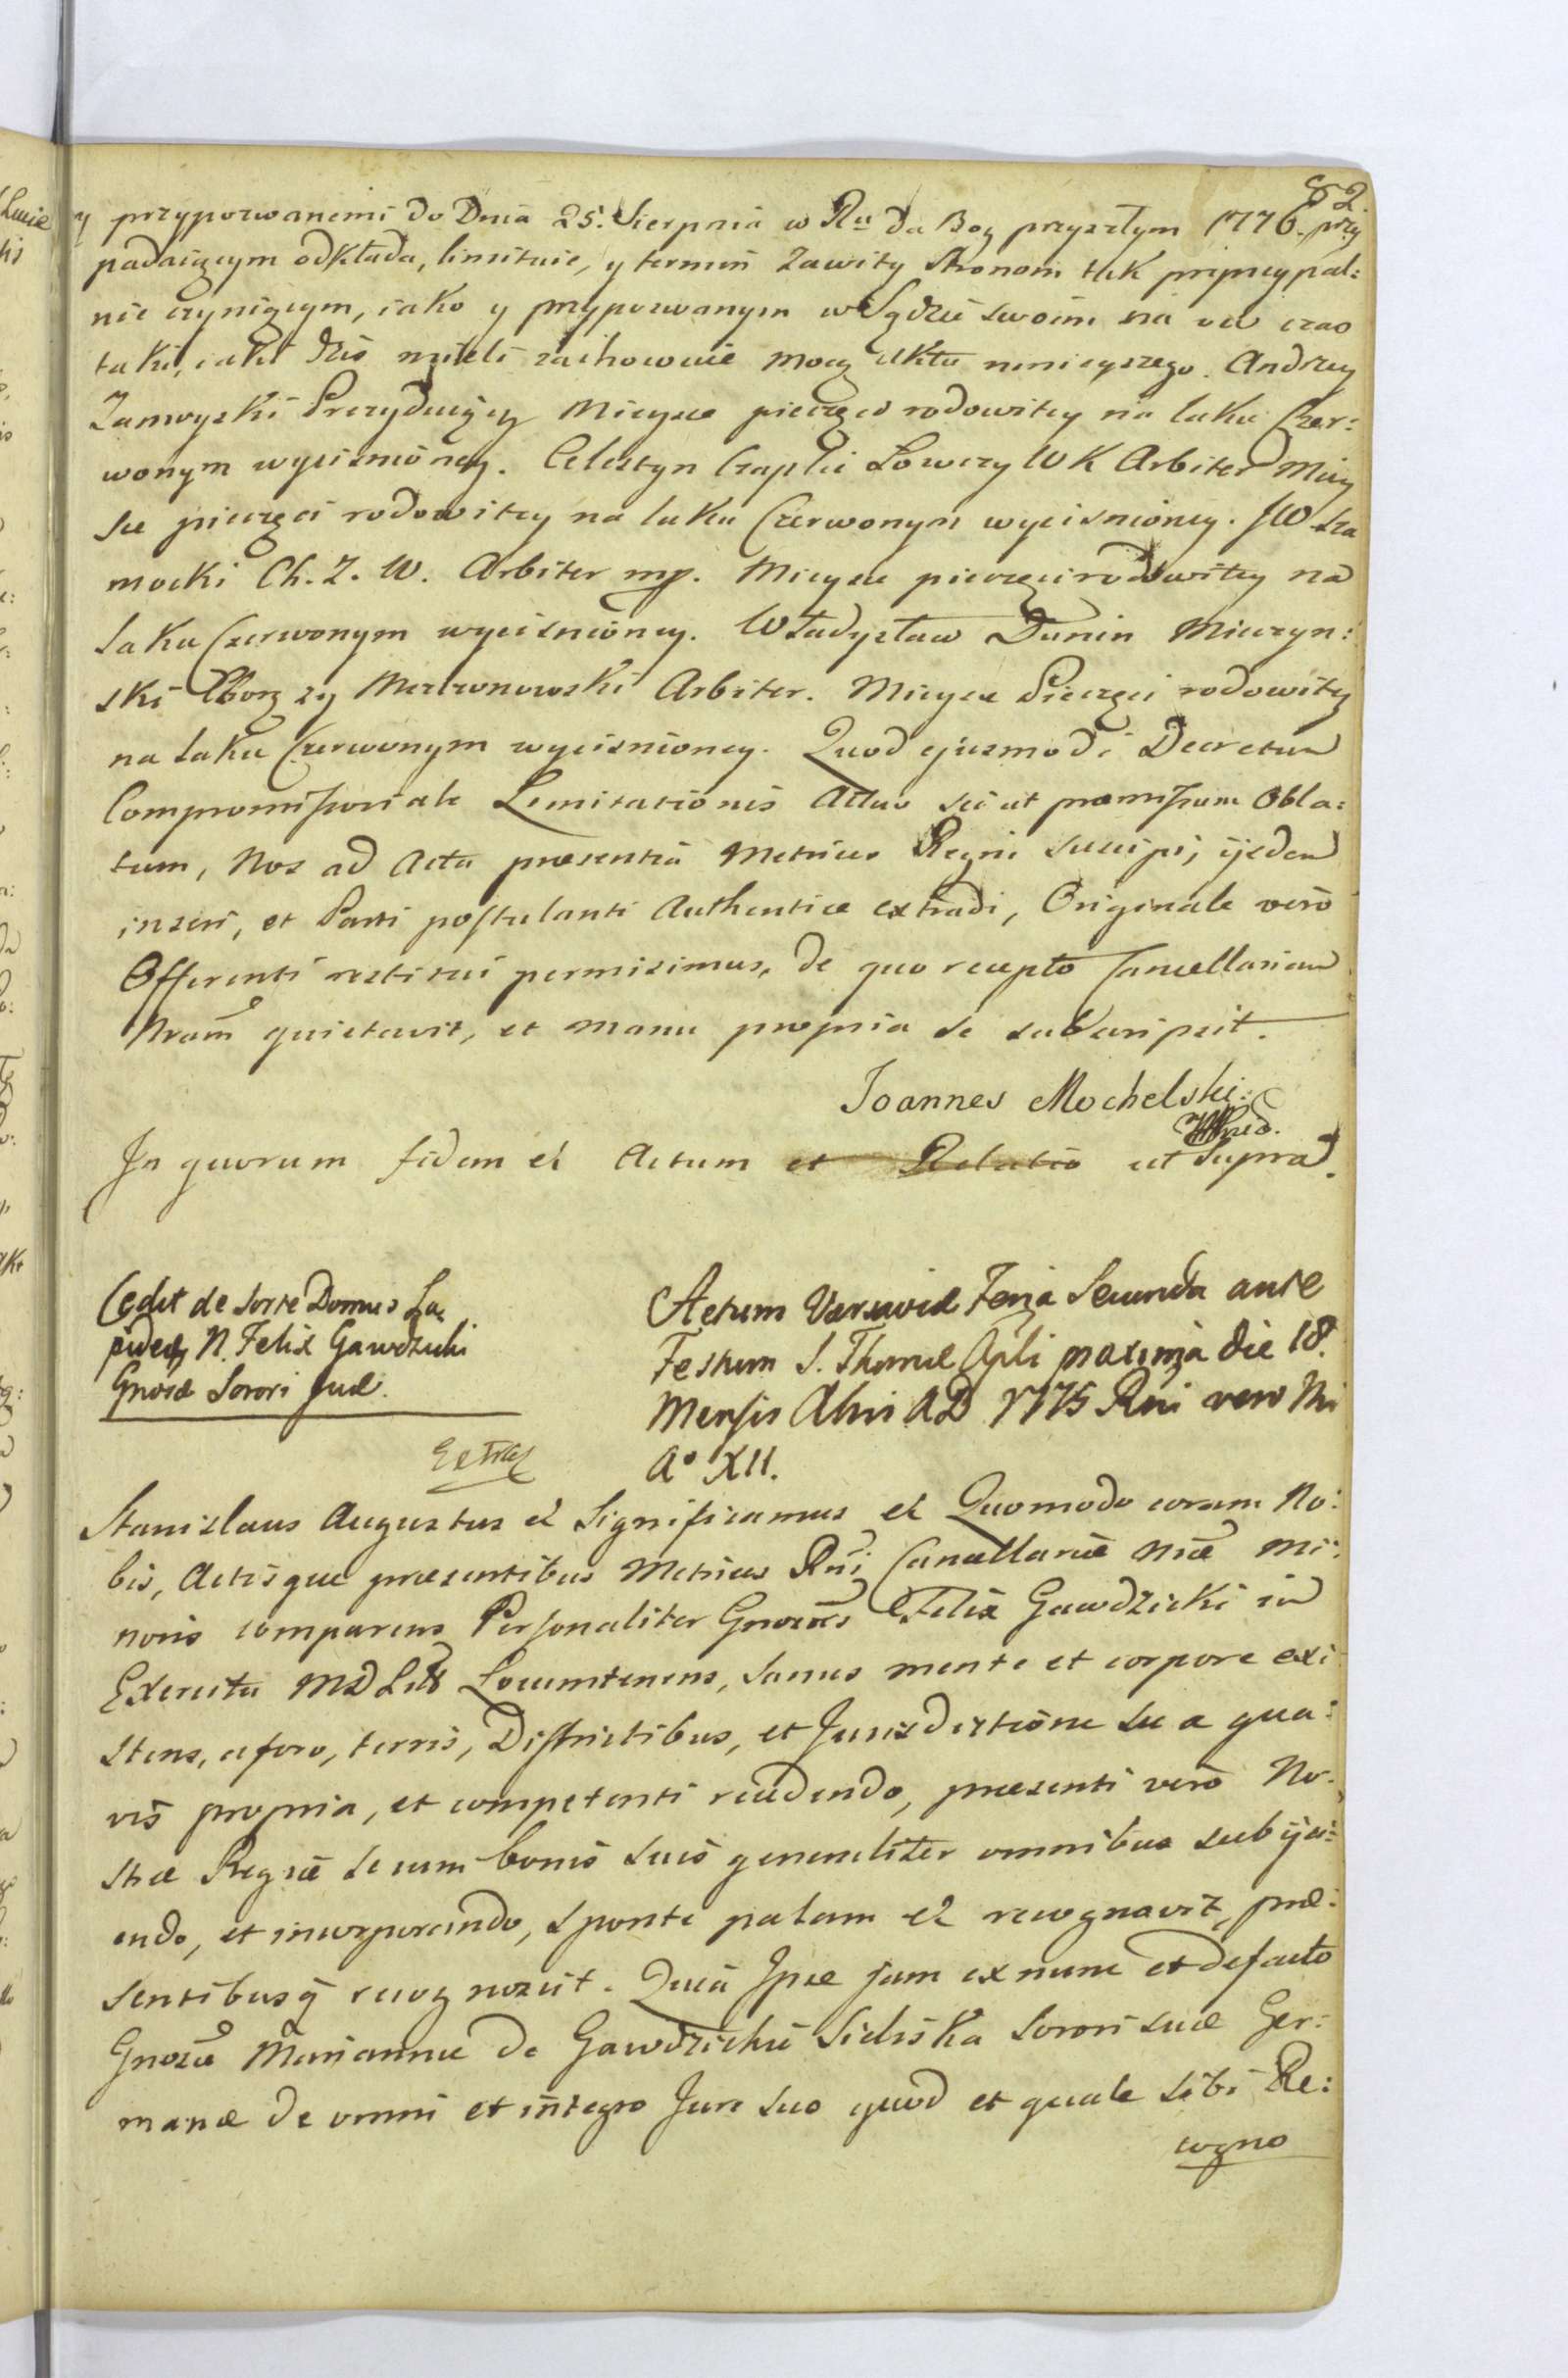 82.
y przypozwanemi do Dnia 25. Sierpnia w Ru da Bog przyszłym 1776. przy
padaiącym odkłada, limituie, y termin zawity Stronom tak pryncypal:
nie czyniącym, iako y przypozwanym w Sądzie swoim na ow czas
taki, iaki dziś mieli zachowuie mocą Aktu ninieyszego. Andrzey
Zamoyski Prezyduiący Mieysce pieczęci rodowitey na laku Czer:
wonym wycisnioney. Celestyn Czaplic Łowczy W K Arbiter Miey
sce pieczęci rodowitey na laku Czerwonym wycisnioney. JW Sza
mocki Ch. Z. W. Arbiter mp. Mieysce pieczęci rodowitey na
laku Czerwonym wycisnioney. Władysław Dunin Mierzyn:
ski Arbiter. Mieysce Pieczęci rodowitey
na laku Czerwonym wycisnioney. Quod ejusmodi Decretum
Compromissoriale Limitationis Actus sicut præmissum Obla:
tum, Nos ad Acta præsentia Metrices Regni suscipi, ijsdem
inseri, et Parti postulanti Authentice extradi, Originale vero
Offerenti restitui permisimus, de quo recepto Cancellariam
Nram quietavit, et manu propria se subscripsit.
Joannes Mochelski
In quorum fidem et Actum et Relatio ut Supra.
Cedit de sorte Domus La
pideæ N. Felix Gawdzicki
Gnosæ Sorori suæ.
Extrad
Actum Varsaviæ Feria Secunda ante
Festum S. Thomæ Apli proxima die 18.
Mensis Xbris AD 1775 Rni vero Nri
Aº XII.
Stanislaus Augustus et Significamus et Quomodo coram No:
bis, Actisque præsentibus Metrices Rni Cancellariæ Nræ Mi:
noris comparens Personaliter Gnosus Felix Gawdzicki in
Exercitu MD Litt Locumtenens, sanus mente et corpore exi
stens, a foro, terris, Districtibus, et Jurisdictione sua qua:
vis propria, et competenti recedendo, præsenti vero No:
stræ Regiæ se cum bonis suis generaliter omnibus subijci:
endo, et incorporando, sponte palam et recognovit, præ:
sentibusq recognoscit. Quia Ipse jam ex nunc et de facto
Gnosæ Mariannæ de Gawdzickie Siel­ska Sorori suæ Ger:
manæ de omni et integro Jure suo quod et quale sibi Re:
cogno